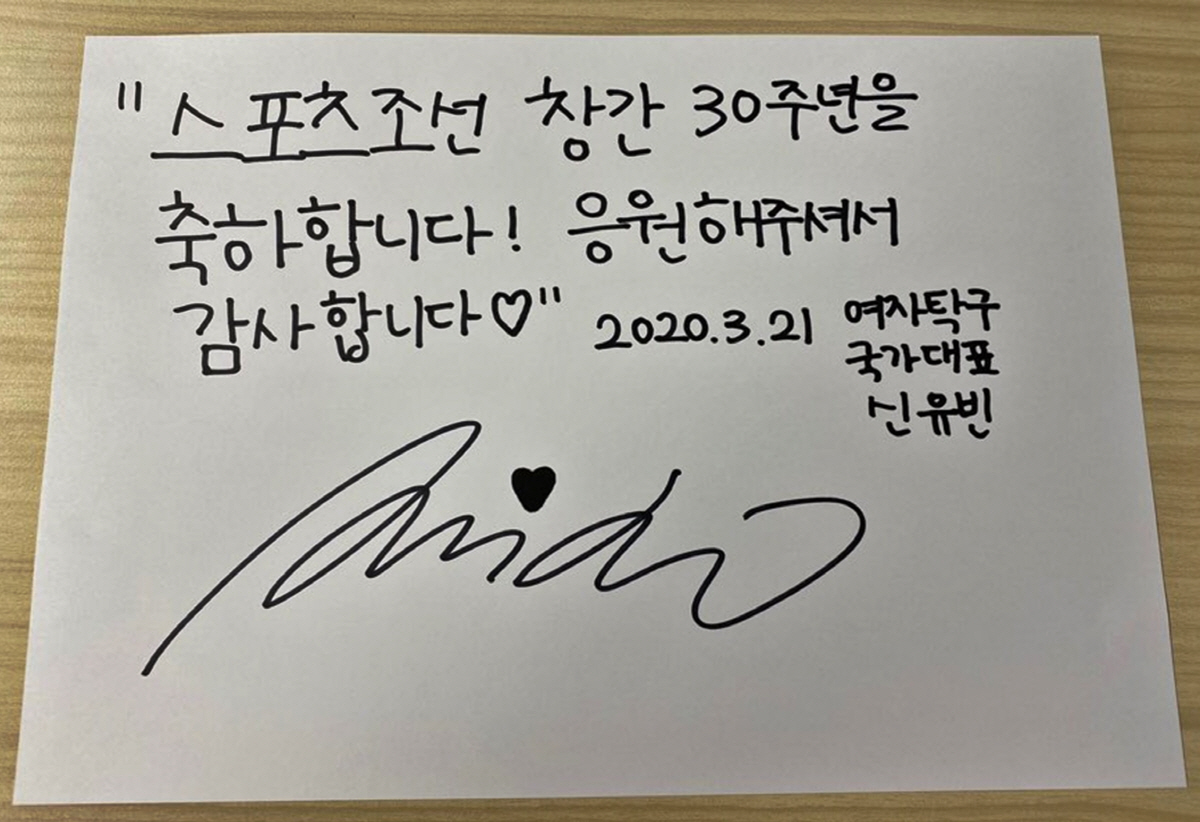 "스포츠조선 창간 30주년을
축하합니다! 응원해주셔서
감사합니다♡" 2020.3.21
여자탁구
국가대표
신유빈